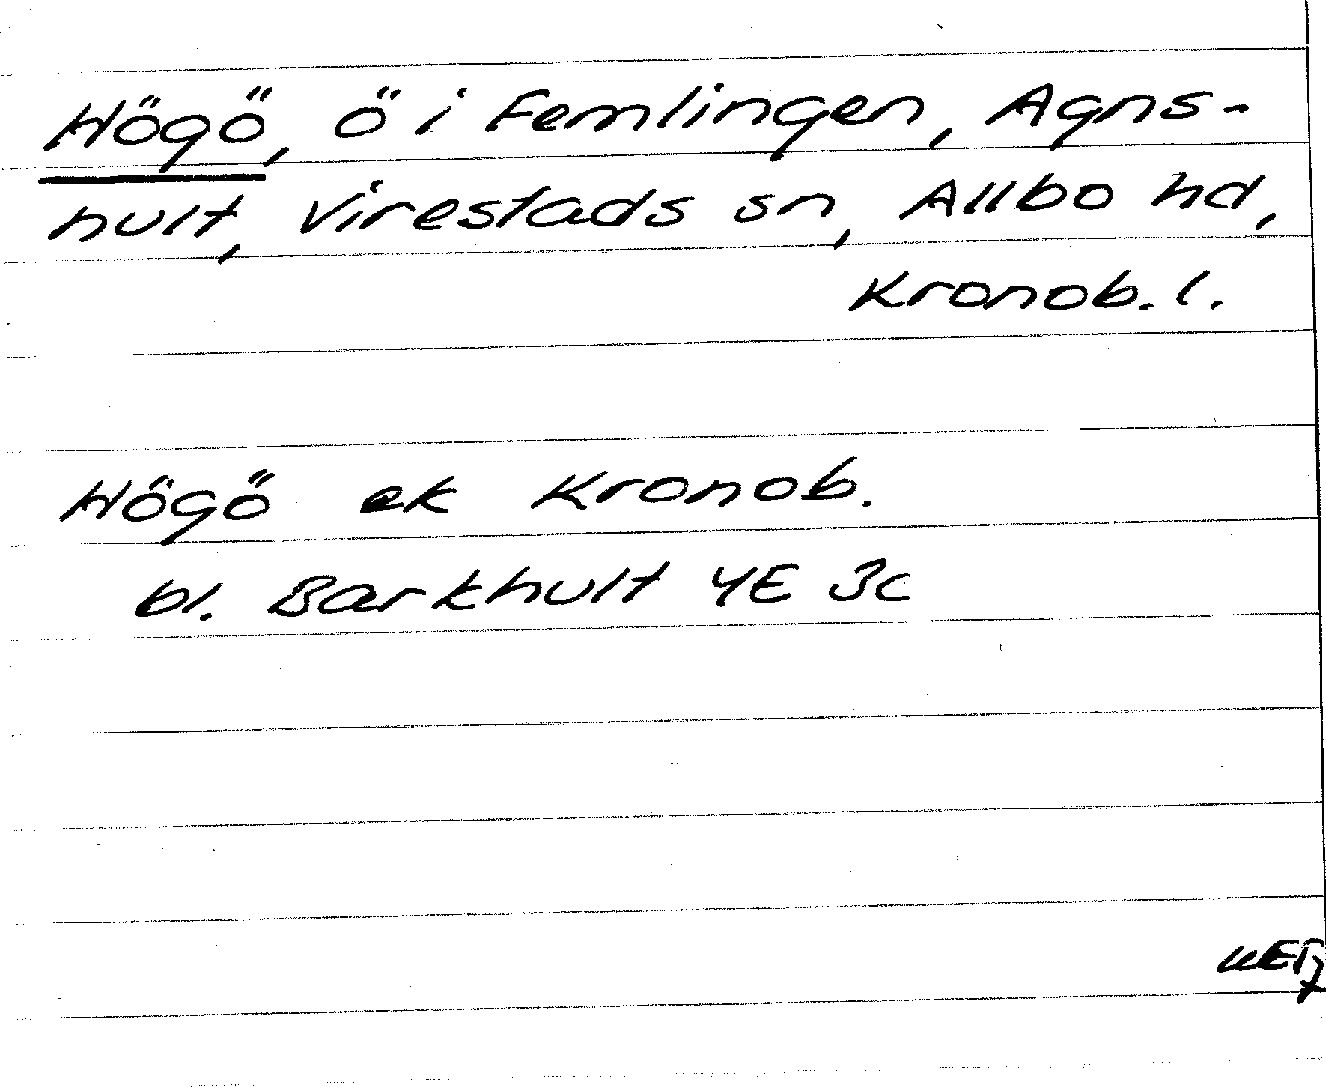 Högö, ö i Femlingen, Agns-
hult, Virestads sn, Allbo hd,
Kronob. l.
Högö ek Kronob.
bl. Barkhult 4E 3c